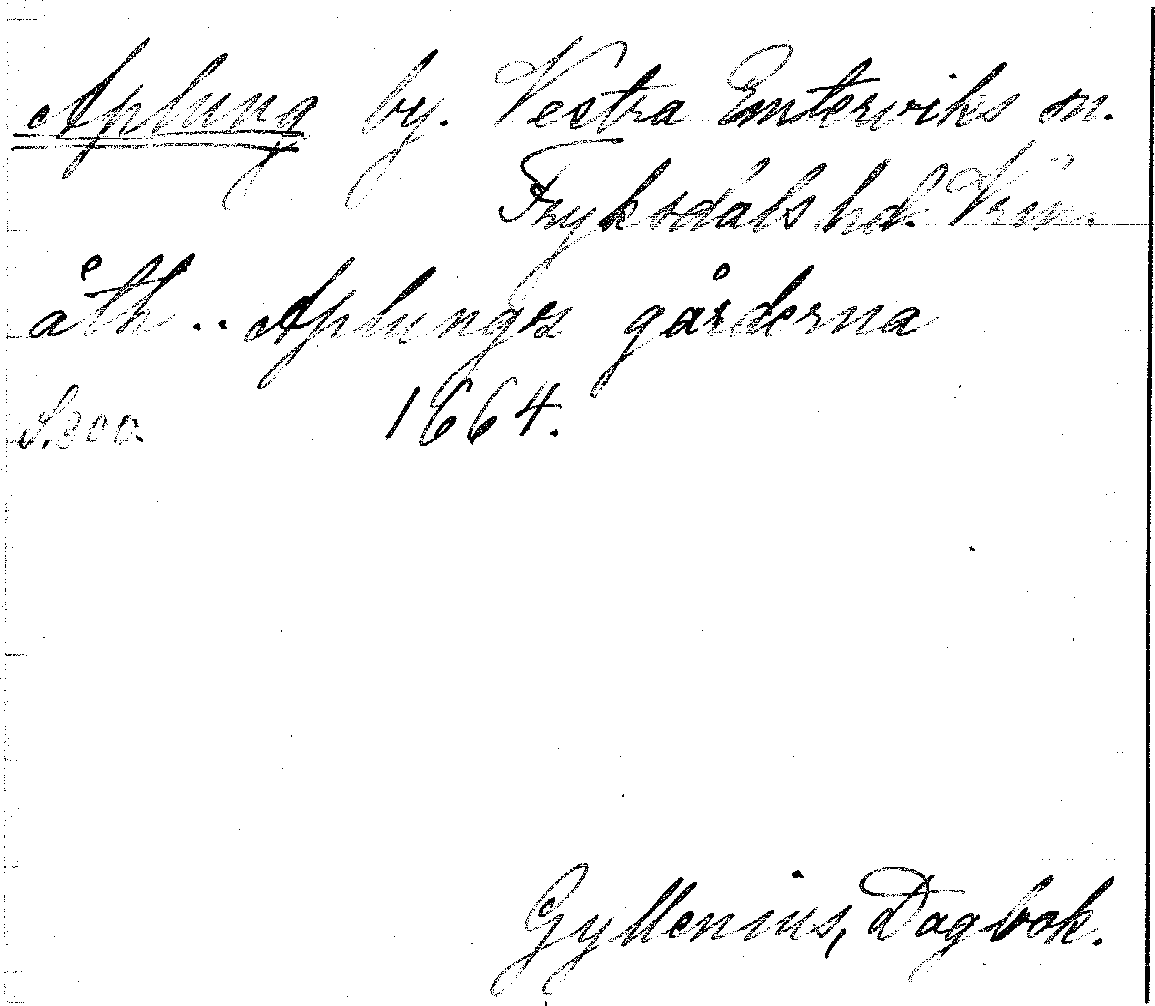 Aplung by. Vestra Emterviks sn.
Fryksdals hd. Vrm.
åth .. Aplungs gårderna
S.300. 1664.
Gyllenius, Dagbok.